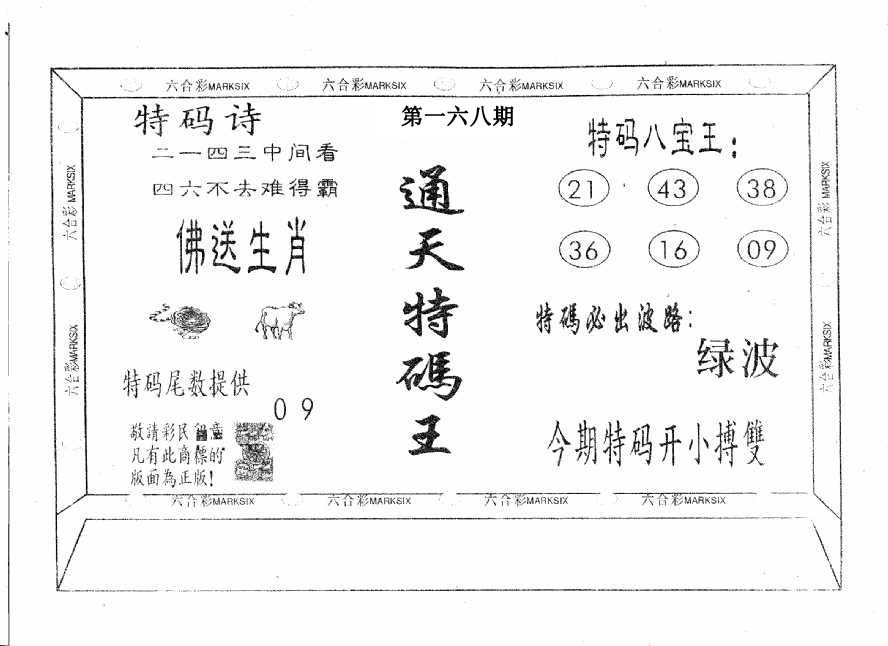 六合彩MARKSIX 六合彩MARKSIX 六合彩MARKSIX 六合彩MARKSIX
特码诗
二一四三中间看
四六不去难得霸
佛送生肖
特码尾数提供
0 9
敬請彩民留意
凡有此商標的
版面為正版!
第一六八期
通天特碼王
特码八宝王:
21 43 38
36 16 09
特碼必出波路:
绿波
今期特码开小搏雙
六合彩MARKSIX
六合彩MARKSIX
六合彩MARKSIX
六合彩MARKSIX
六合彩MARKSIX 六合彩MARKSIX 六合彩MARKSIX 六合彩MARKSIX